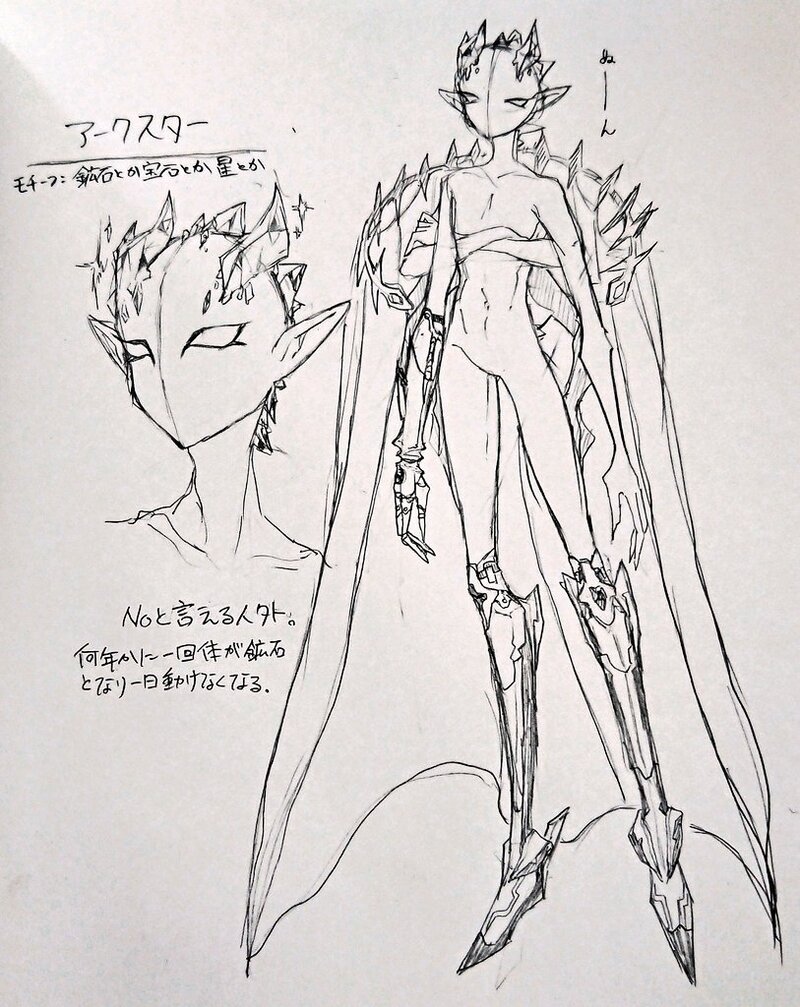 アークスター
モチーフ：鉱石とか宝石とか星とか
ぬーん
Noと言える人外。
何年かに一回体が鉱石
となり一日動けなくなる。